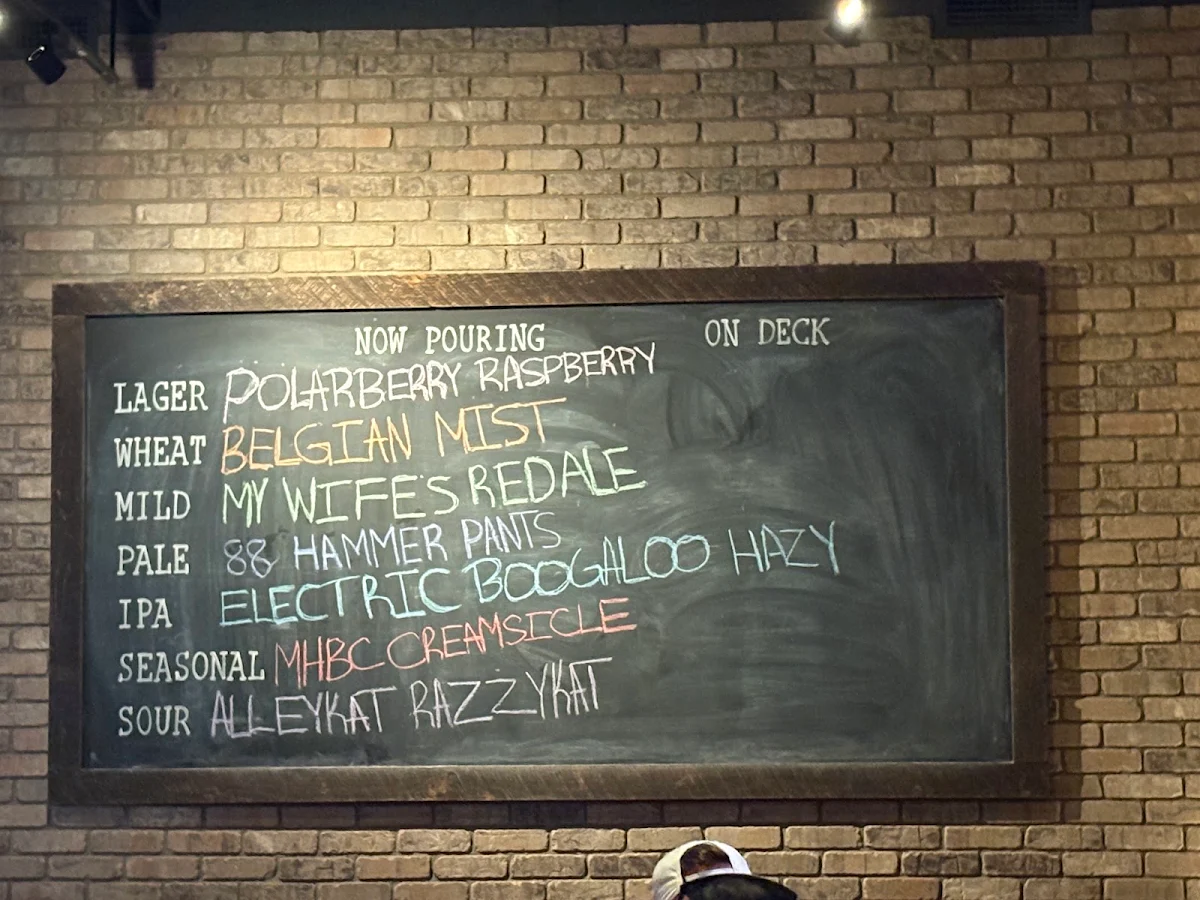 NOW POURING ON DECK
LAGER POLARBERRY RASPBERRY
WHEAT BELGIAN MIST
MILD MY WIFE'S RED ALE
PALE 88 HAMMER PANTS
IPA ELECTRIC BOOGALOO HAZY
SEASONAL MHBC CREAMSICLE
SOUR ALLEYKAT RAZZYKAT